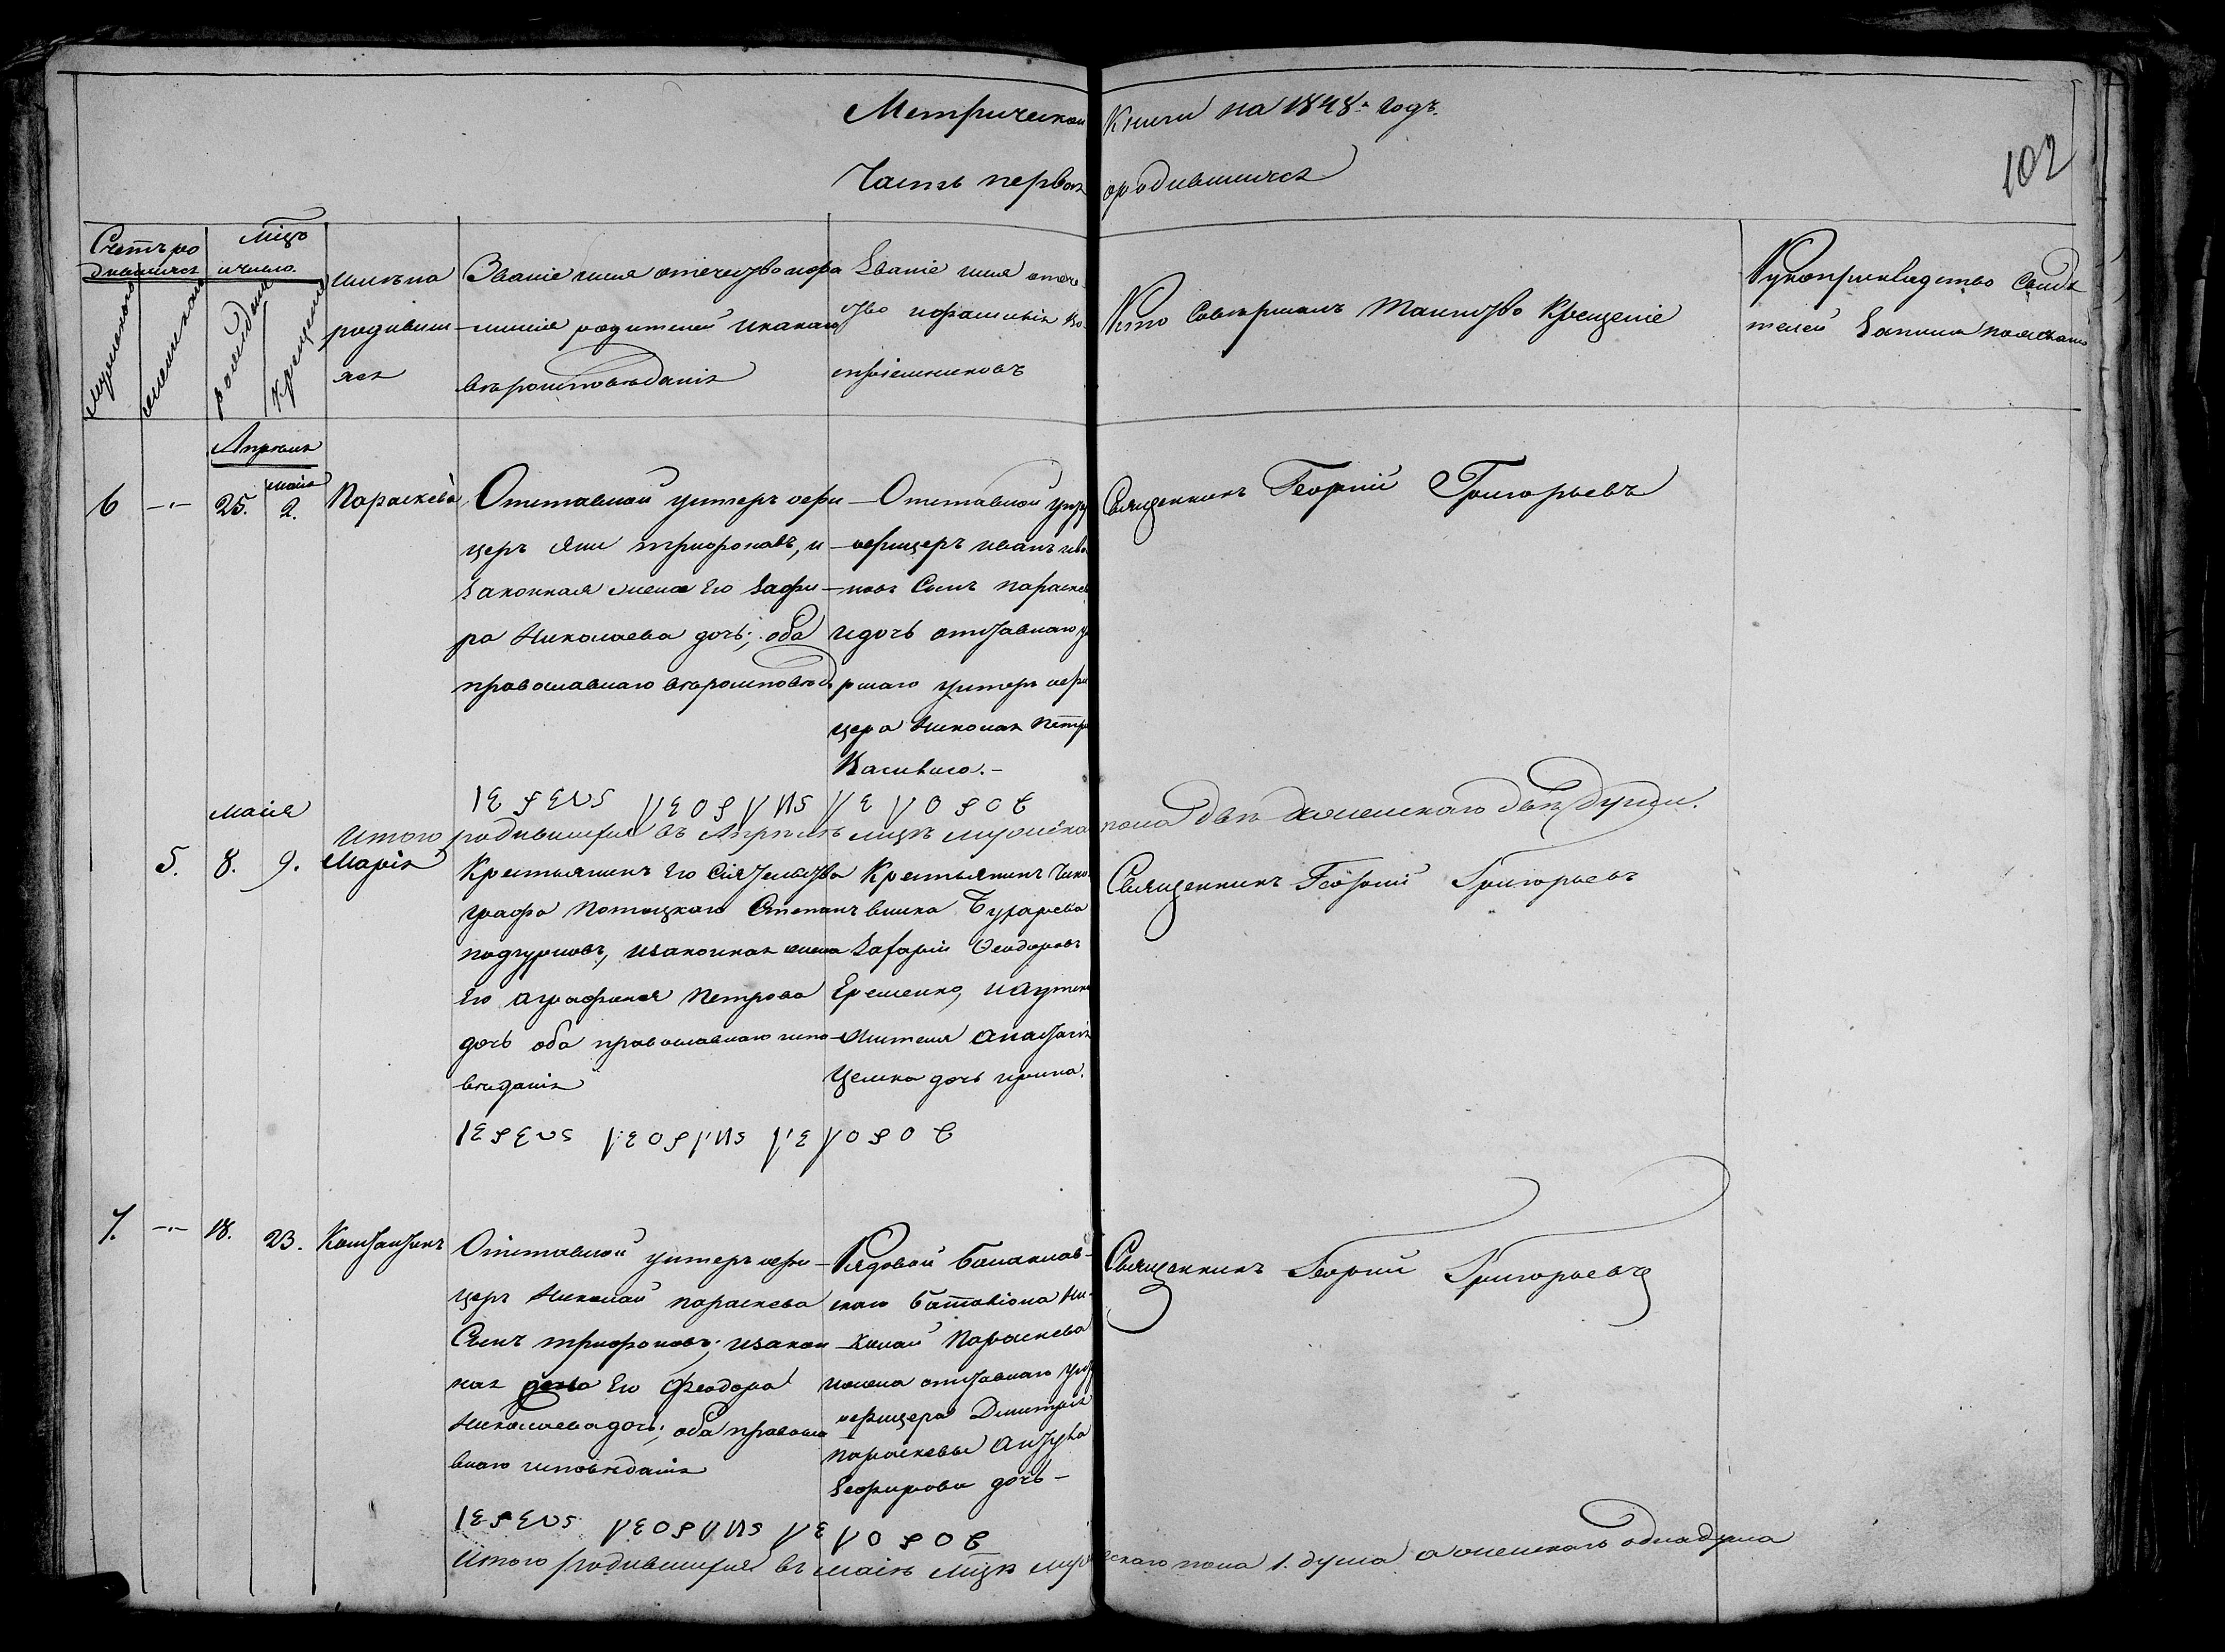 Метрической книги на 1848й годъ.
Часть первая о родившихся
102
Счетъ ро
дившихся
Мцъ
и число.
мужескаго
женскаго
рожденія
крещенія
имена
родивши
яся
Званіе имя отечество и фа
милія родителей и какаго
вѣроисповѣданія
Званіе имя отече
ство и фамилія во
спріемниковъ
Кто совершалъ таинство крещеніе
Рукоприкладство свидѣ
телей записи по желанію
Апрѣля
6 -"- 25. маія 2. Параскева
Отставной унтеръ офи
церъ Яни Трифоновъ, и
законная жена его Зафи
ра Николаева дочь; оба
православнаго вѣроисповѣд
Отставной унт
офицеръ Иванъ Ива
новъ сынъ Параскева
и дочь отставнаго
ршаго унтеръ офи
цера Николая Петра
Священникъ Георгій Григорьевъ
Итого родившихся въ Апрѣлѣ мцѣ мужеска пола двѣ женскаго двѣ души.
маія
5. 8. 9. Марія
Крестьянинъ его сіятельства
графа Потоцкаго Степанъ
и законная жена
его Агрофина Петрова
дочь оба православнаго испо
вѣданія
Крестьянинъ Чино
вника Бурачева
Захарій Феодоровъ
Ерешенко,
жителя Анастасія
дочь Ирина.
Священникъ Георгій Григорьевъ
7. -"- 18. 23. Констанинъ
Отставной унтеръ офи
церъ Николай Параскева
сынъ Трифоновъ; и закон
ная жена его Феодора
Николаева дочь; оба правосла
внаго исповѣданія
Рядовой Балаклав
скаго баталіона Ни
колай Параскева
и жена отставнаго унт
офицера Дмитрія
Параскевы
Зефирова дочь
Священникъ Георгій Григорьевъ
Итого родившихся въ маіѣ мцѣ мужескаго пола 1. душа а женскаго одна душа